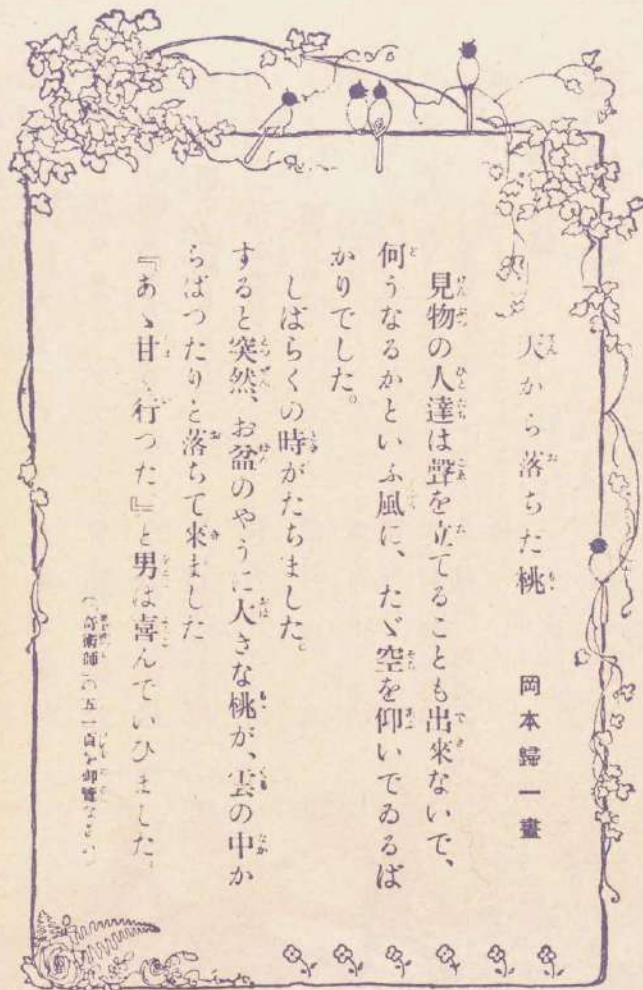 天から落ちた桃　岡本歸一畫
見物の人達は聲を立てることも出來ないで、
何うなるかといふ風に、たゞ空を仰いでゐるば
かりでした。
しばらくの時がたちました。
すると突然、お盆のやうに大きな桃が、雲の中か
らばつたりと落ちて來ました
『あゝ甘く行つた』と男は喜んでいひました。
(「奇術師」の五一頁を御覽なさい)